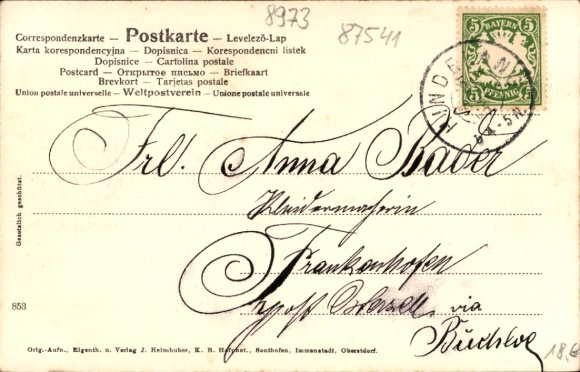 8973
87541
Correspondenzkarte – Postkarte – Levelező-Lap
Karta korespondencyjna – Dopisnica – Korespondencni listek
Dopisnice – Cartolina postale
Postcard – ОТКРЫТОЕ ПИСЬМО – Briefkaart
Brevkort – Tarjetas postale
Union postale universelle – Weltpostverein – Unione postale universale
5 BAYERN 5
5 PFENNIG 5
Frl. Anna Bader
Kleidermacherin
Frankenhofen
Post via
Buchloe
Gesetzlich geschützt.
853
Orig.-Aufn., Eigenth. u. Verlag J. Heimhuber, K. B. Hofphot., Sonthofen, Immenstadt, Oberstdorf.
18.